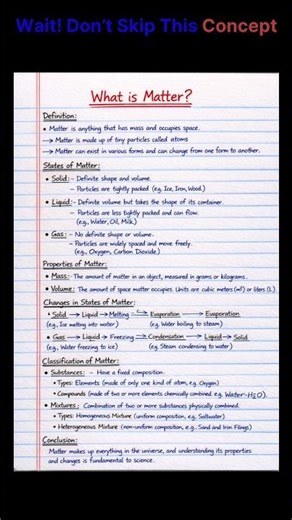 Wait! Don't Skip This Concept
What is Matter?
Definition:
• Matter is anything that has mass and occupies space.
→ Matter is made up of tiny particles called atoms
→ Matter can exist in various forms and can change from one form to another.
States of Matter:
• Solid:- Definite shape and volume.
– Particles are tightly packed (e.g. Ice, Iron, Wood.)
• Liquid:- Definite volume but takes the shape of its container.
– Particles are less tightly packed and can flow.
(e.g., Water, Oil, Milk)
• Gas:- No definite shape or volume.
– Particles are widely spaced and move freely.
(e.g., Oxygen, Carbon Dioxide)
Properties of Matter:
• Mass: The amount of matter in an object, measured in grams or kilograms.
• Volume: The amount of space matter occupies. Units are cubic meters (m³) or liters (L)
Changes in States of Matter:
• Solid → Liquid → Melting → Evaporation → Evaporation
(e.g., Ice melting into water) (e.g. Water boiling to steam)
• Gas → Liquid → Freezing → Condensation → Liquid → Solid
(e.g. Water freezing to ice) (e.g. Steam condensing to water)
Classification of Matter:
• Substances: – Have a fixed composition.
• Types: Elements (made of only one kind of atom, eg. Oxygen)
• Compounds (made of two or more elements chemically combined. eg. Water-H₂O).
• Mixtures: Combination of two or more substances physically combined.
• Types: Homogeneous Mixture (uniform composition, e.g. Saltwater)
• Heterogeneous Mixture (non-uniform composition, e.g., Sand and Iron Filings)
Conclusion:
Matter makes up everything in the universe, and understanding its properties
and changes is fundamental to science.